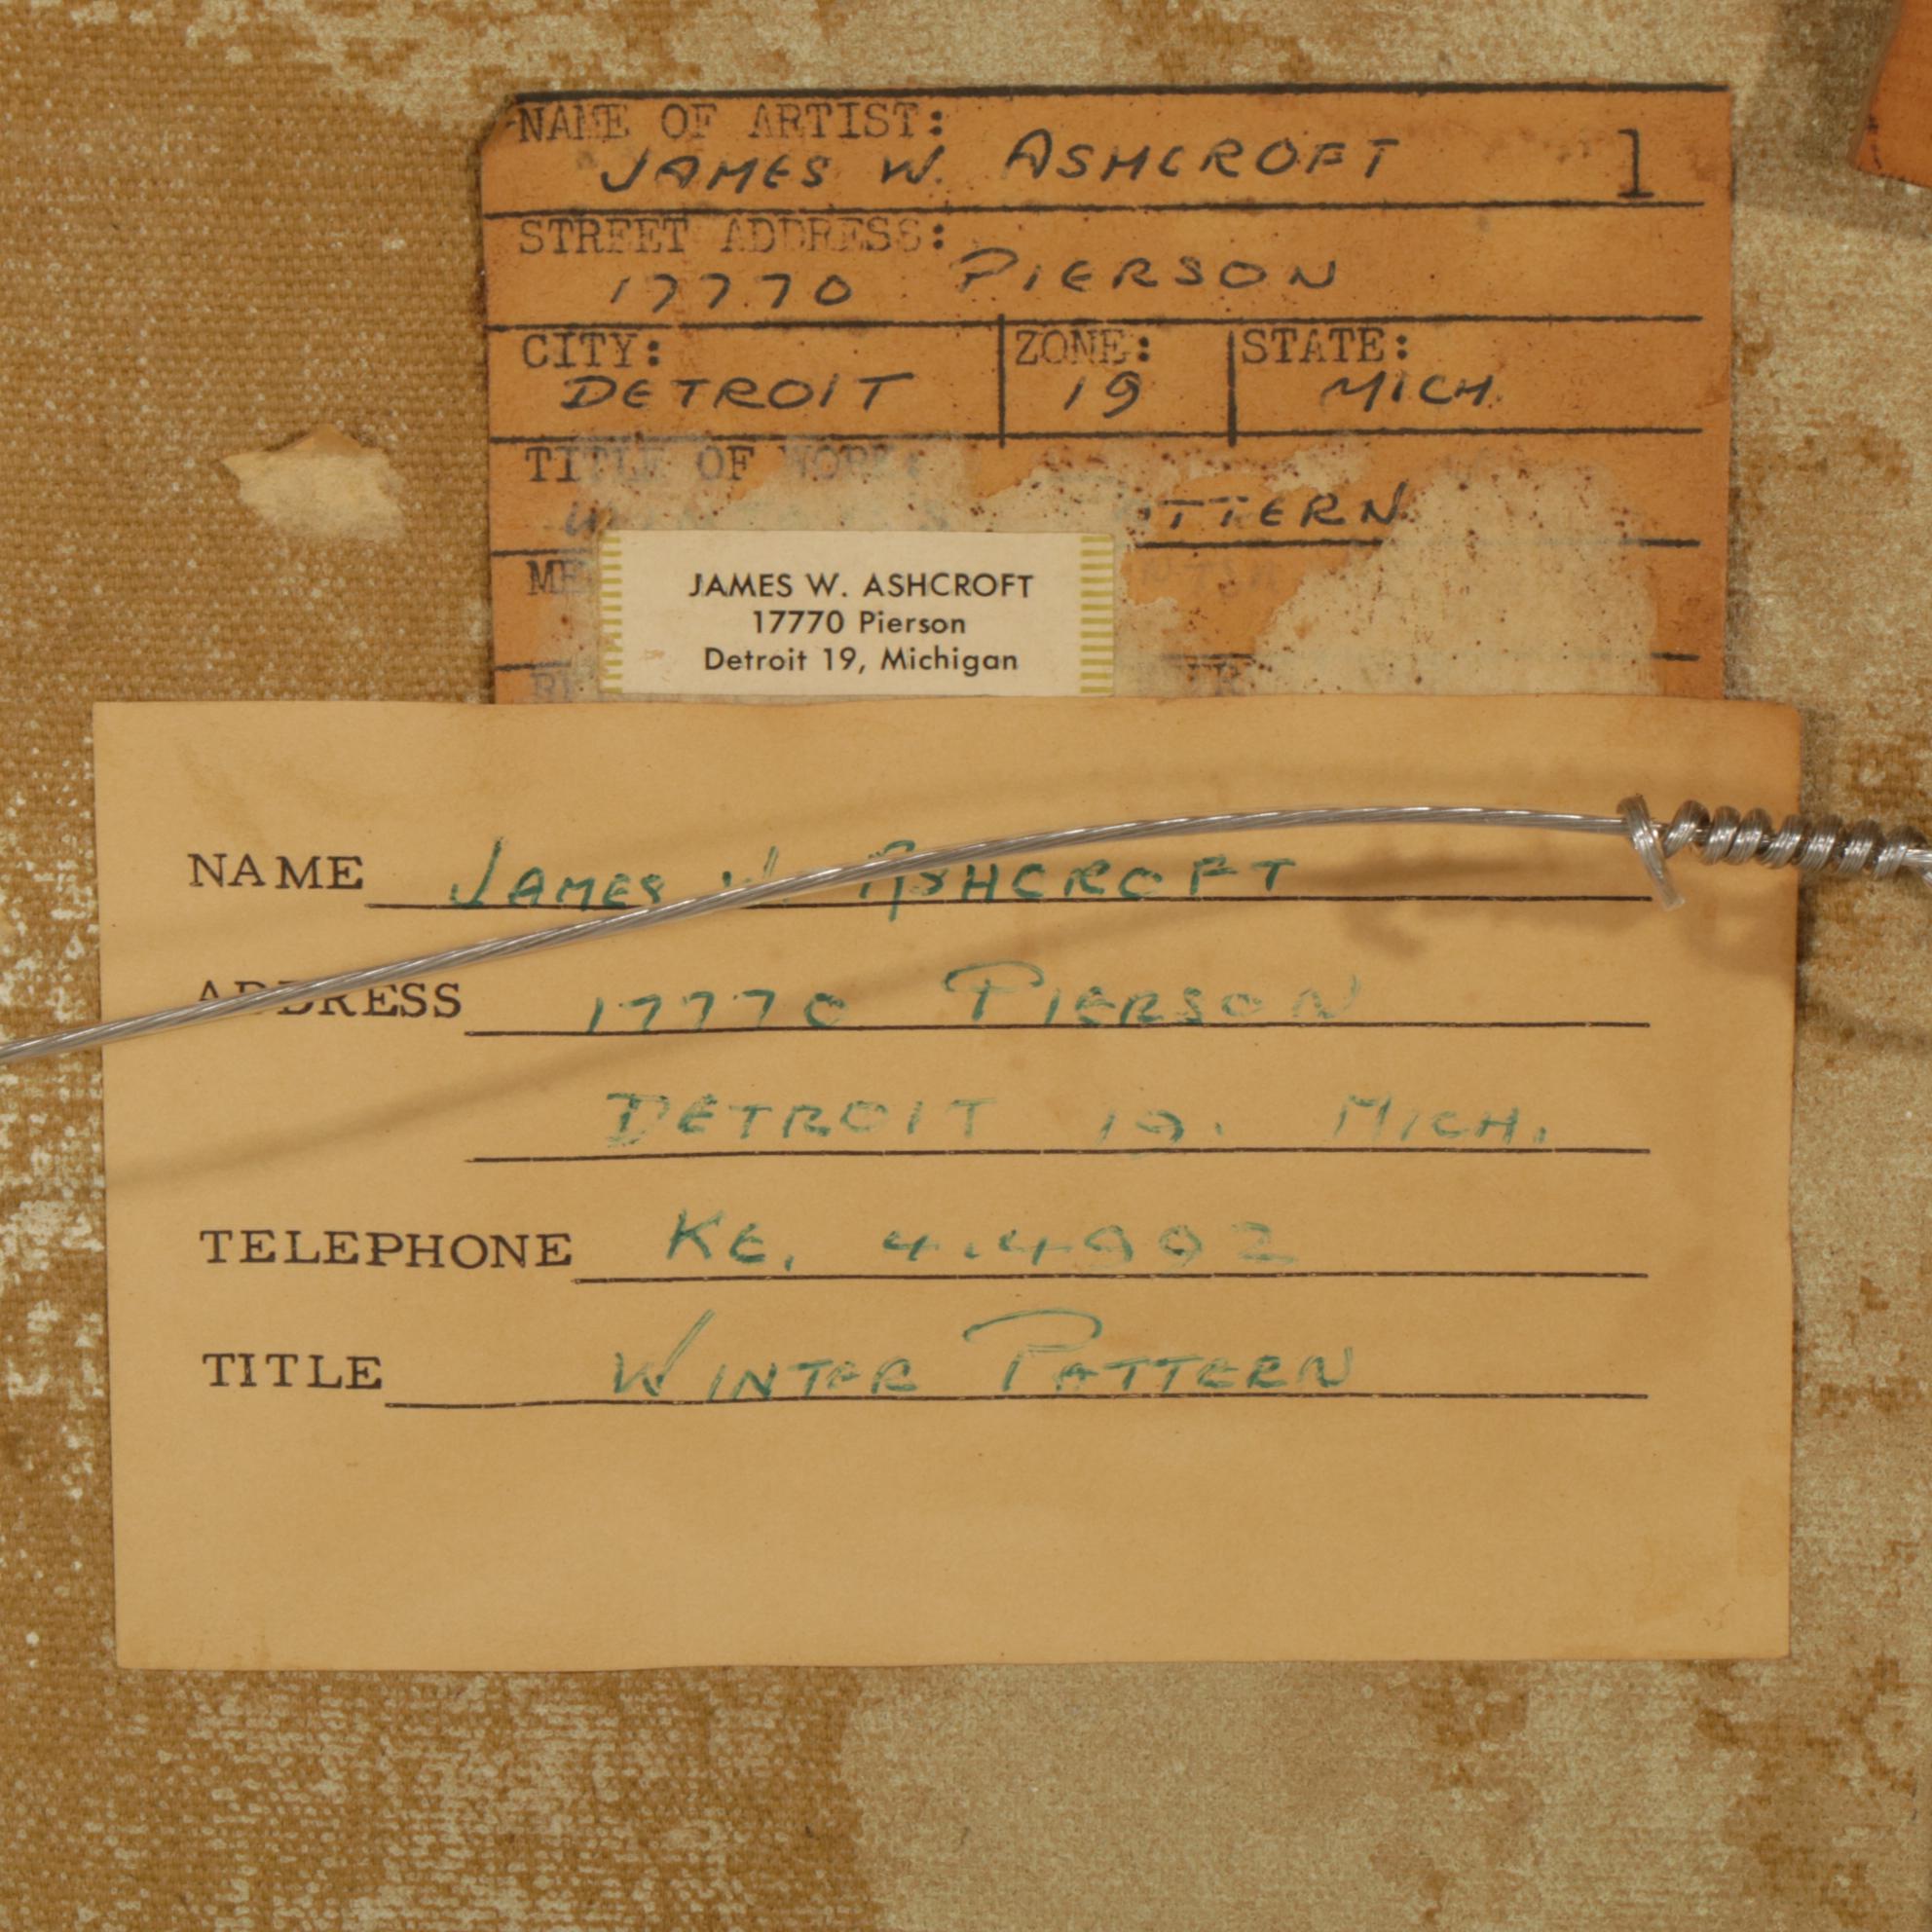 NAME OF ARTIST:
JAMES W. ASHCROFT 1
STREET ADDRESS:
17770 PIERSON
CITY: ZONE: STATE:
DETROIT 19 MICH.
TITLE OF WORK:
JAMES W. ASHCROFT
17770 Pierson
Detroit 19, Michigan
NAME JAMES W ASHCROFT
ADDRESS 17770 PIERSON
DETROIT 19. MICH.
TELEPHONE KE. 4.4992
TITLE WINTER PATTERN